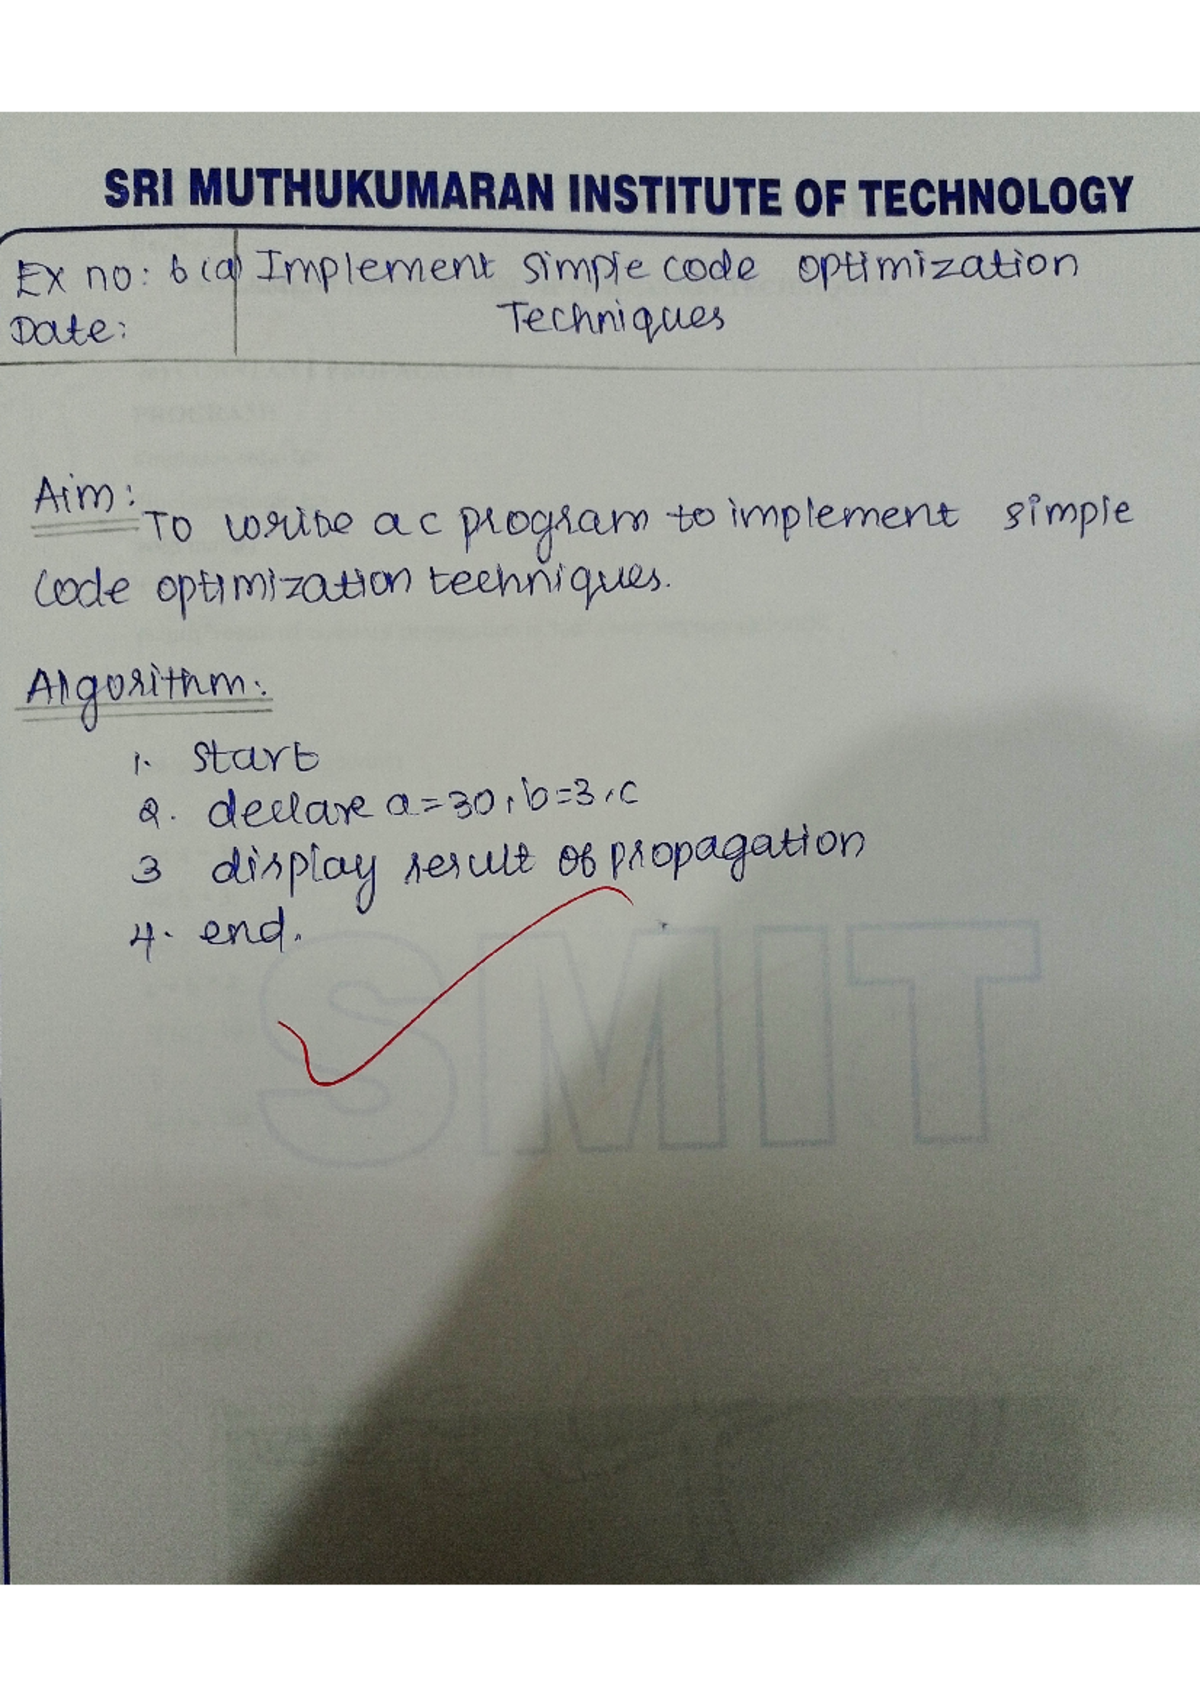 SRI MUTHUKUMARAN INSTITUTE OF TECHNOLOGY
Ex no: 6(a) Implement simple code optimization
Date: Techniques
Aim:
To write a c program to implement simple
code optimization techniques.
Algorithm:
1. start
2. declare a=30, b=3, c
3 display result of propagation
4. end.
SMIT